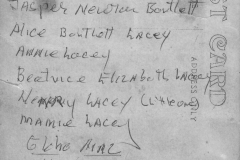 Jasper Newton Bartlett
Alice Bartlett Lacey
Annie Lacey
Beatrice Elizabeth Lacey
Lacey
Mamie Lacey
Echo Mac
ST CARD
ADDRESS ONLY